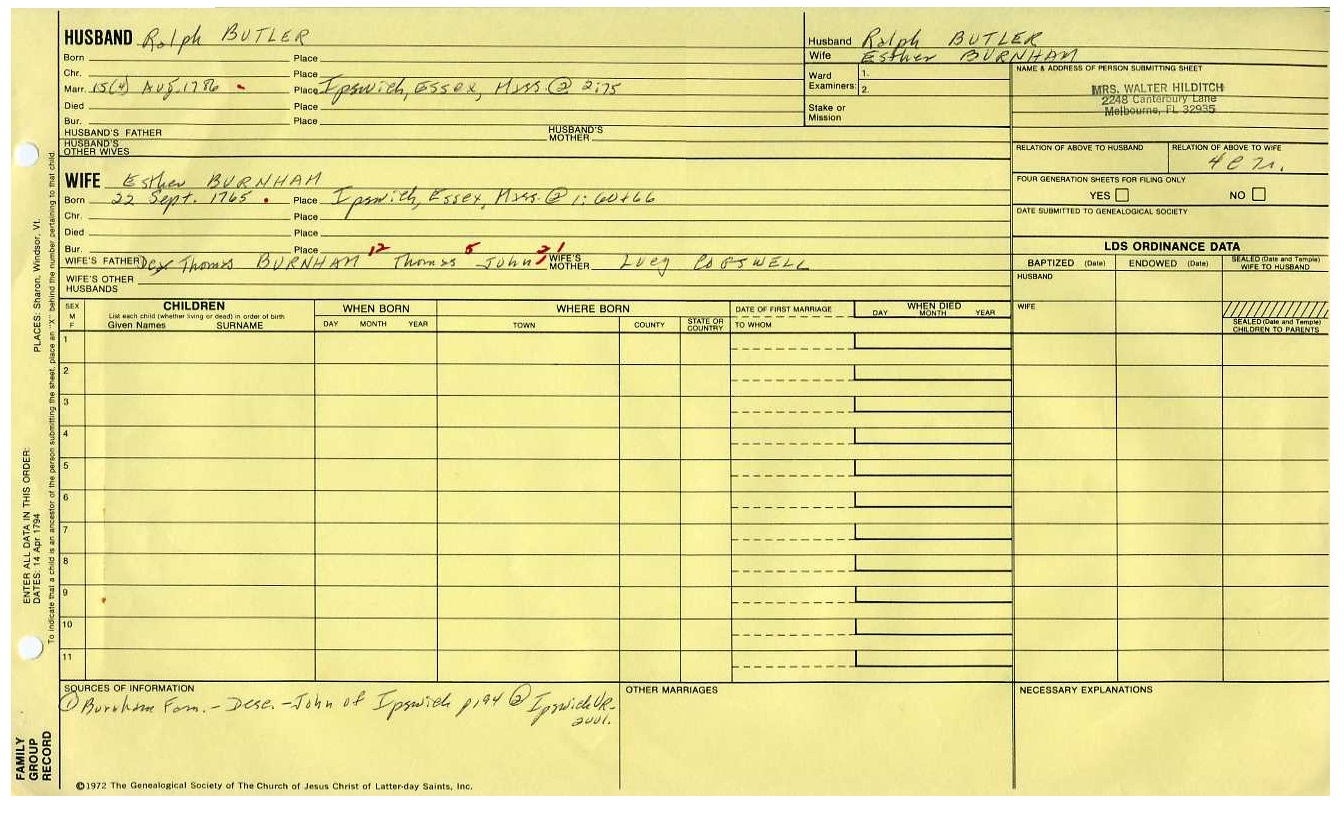 HUSBAND Ralph BUTLER
Born Place
Chr. Place
Marr. 15(4) Aug. 1786 Place Ipswich, Essex, Mass. @ 2:75
Died Place
Bur. Place
HUSBAND'S FATHER HUSBAND'S MOTHER
HUSBAND'S OTHER WIVES
Husband Ralph BUTLER
Wife Esther BURNHAM
Ward Examiners: 1.
2.
Stake or Mission
NAME & ADDRESS OF PERSON SUBMITTING SHEET
MRS. WALTER HILDITCH
2248 Canterbury Lane
Melbourne, FL 32935
RELATION OF ABOVE TO HUSBAND RELATION OF ABOVE TO WIFE
FOUR GENERATION SHEETS FOR FILING ONLY
YES NO
DATE SUBMITTED TO GENEALOGICAL SOCIETY
WIFE Esther BURNHAM
Born 22 Sept. 1765 Place Ipswich, Essex, Mass. @ 1:60+66
Chr. Place
Died Place
Bur. Place
WIFE'S FATHER Thomas BURNHAM 12 Thomas 5 John 2 1 WIFE'S MOTHER Lucy COGSWELL
WIFE'S OTHER HUSBANDS
LDS ORDINANCE DATA
BAPTIZED (Date) ENDOWED (Date) SEALED (Date and Temple) WIFE TO HUSBAND
HUSBAND
WIFE
SEALED (Date and Temple) CHILDREN TO PARENTS
SEX M F
CHILDREN
List each child (whether living or dead) in order of birth
Given Names SURNAME
WHEN BORN
DAY MONTH YEAR
WHERE BORN
TOWN COUNTY STATE OR COUNTRY
DATE OF FIRST MARRIAGE
TO WHOM
WHEN DIED
DAY MONTH YEAR
1
2
3
4
5
6
7
8
9
10
11
SOURCES OF INFORMATION
① Burnham Fam. - Desc. - John of Ipswich p194 ② Ipswich VR-
OTHER MARRIAGES
NECESSARY EXPLANATIONS
©1972 The Genealogical Society of The Church of Jesus Christ of Latter-day Saints, Inc.
FAMILY GROUP RECORD
ENTER ALL DATA IN THIS ORDER:
DATES: 14 Apr 1794
PLACES: Sharon, Windsor, Vt.
To indicate that a child is an ancestor of the person submitting the sheet, place an "X" behind the number pertaining to that child.